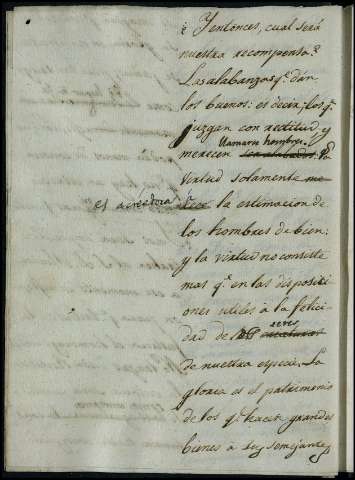 ¿ Y entonces, cual será
nuestra recompensa?
Las alabanzas q.e dán
los buenos: es decir; los q.e
juzgan con rectitud, y
llamarse hombres.
merecen La
virtud solamente
es acréedora à la estimacion de
los hombres de bien;
y la virtud no consiste
mas q.e en las disposici-
ones utiles à la felici-
seres
dad de los
de nuestra especie. La
gloria es el patrimonio
de los q.e hacen grandes
bienes à sus semejantes